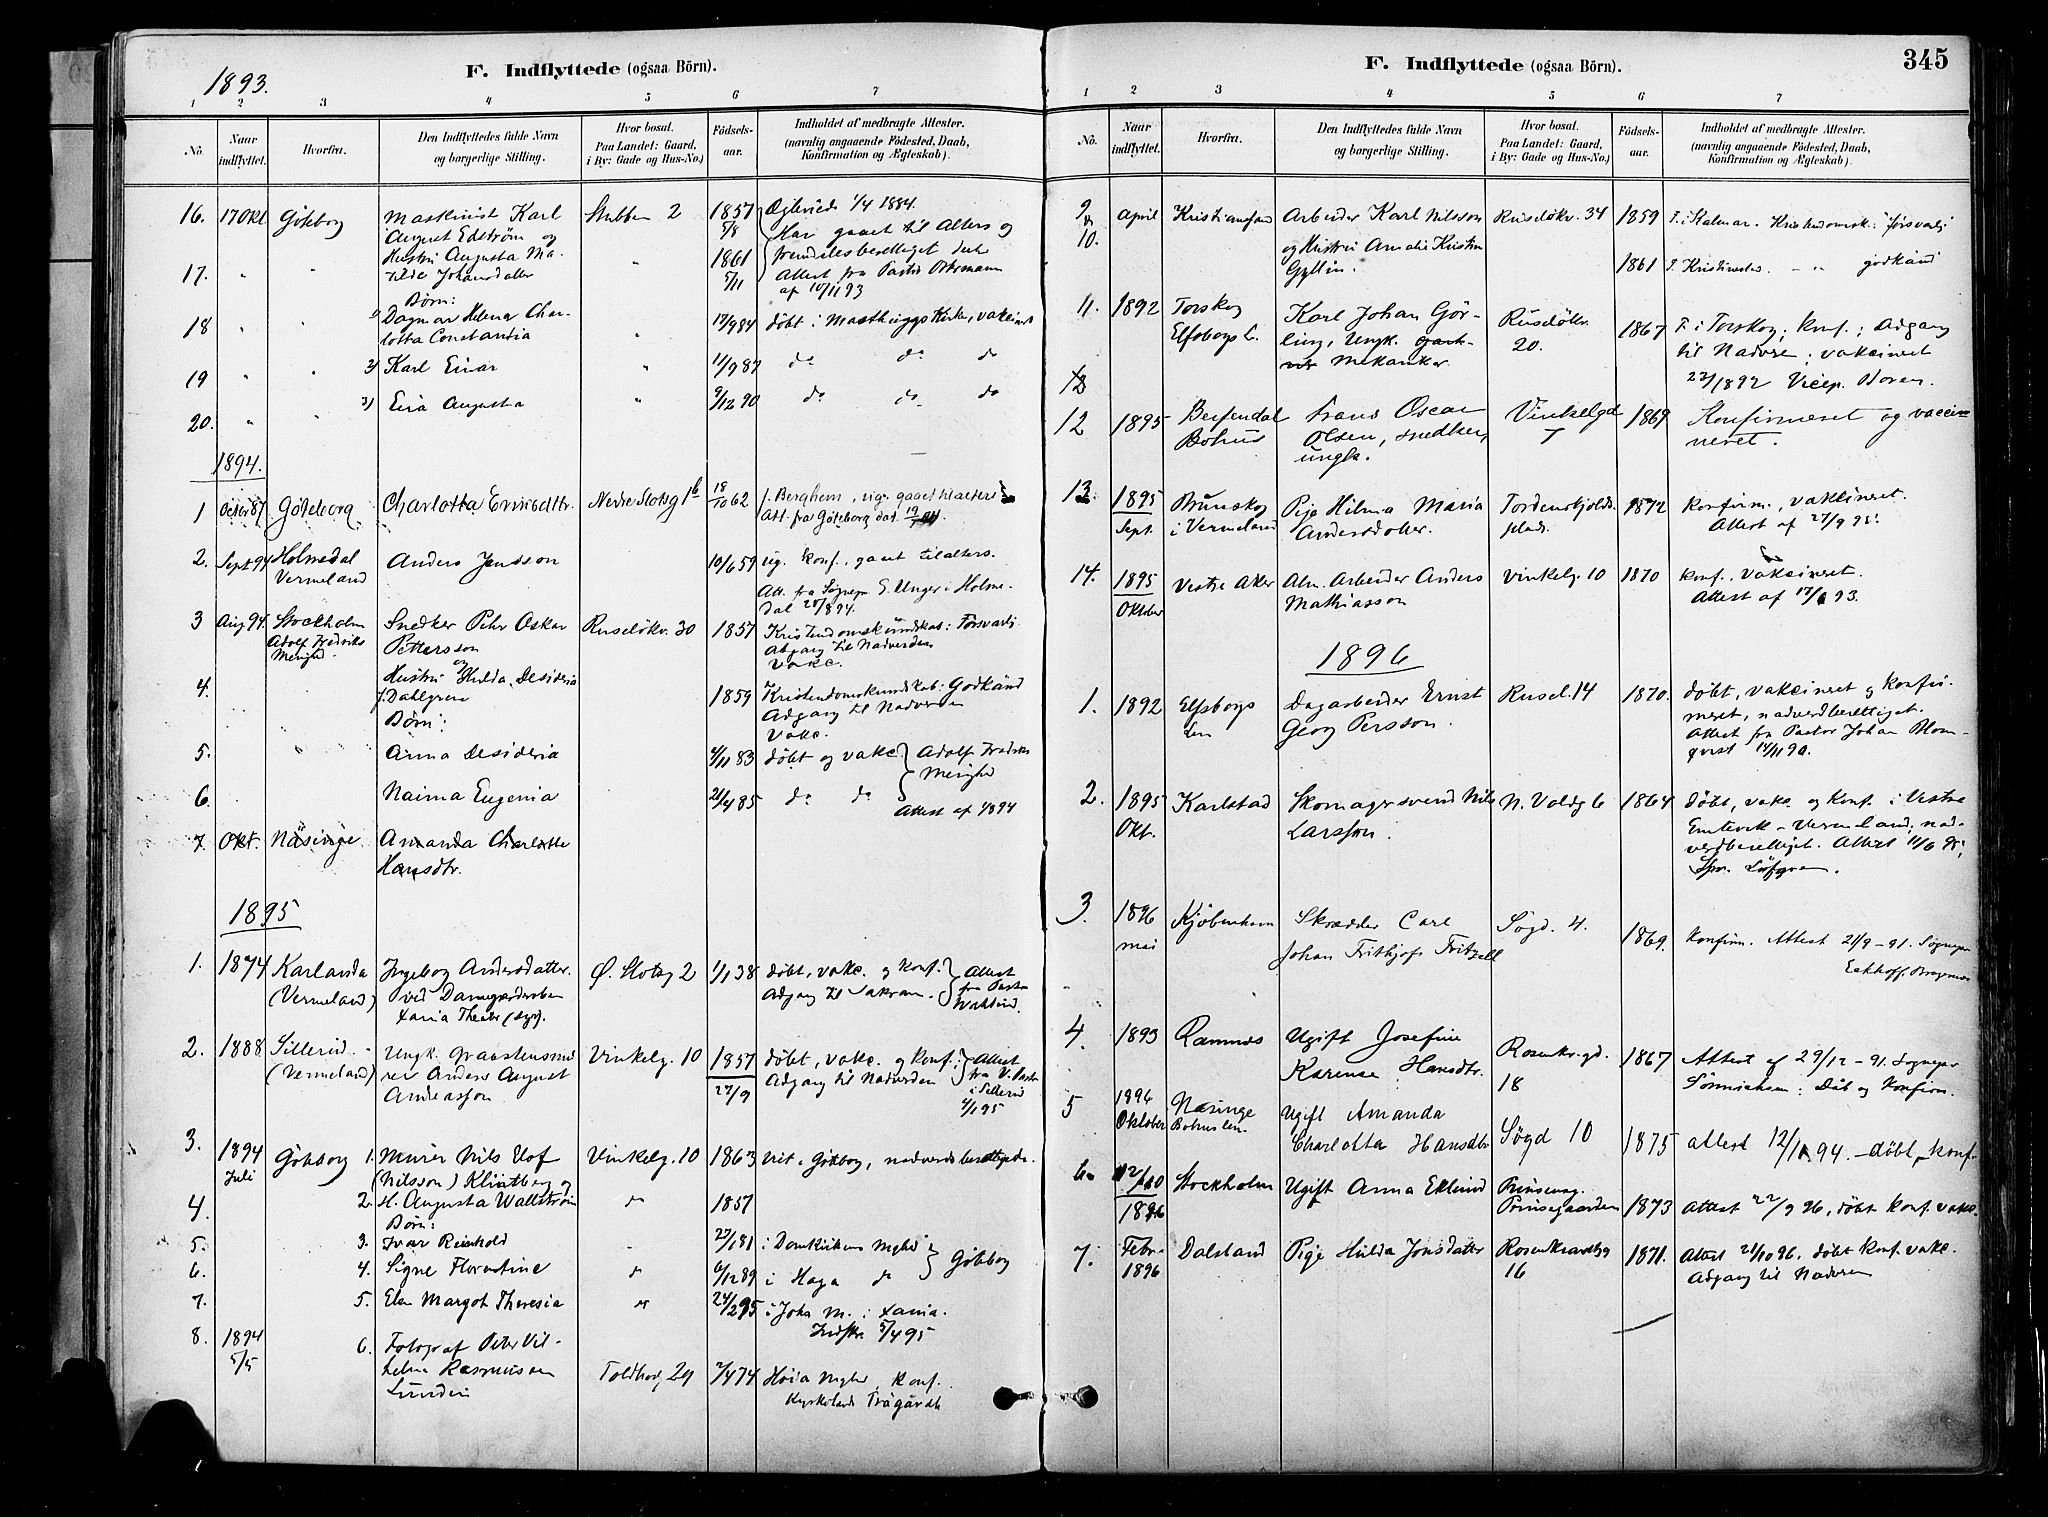 1893.
F. Indflyttede (ogsaa Börn).
1 2 3 4 5 6 7
No.
Naar indflyttet.
Hvorfra.
Den Indflyttedes fulde Navn og borgerlige Stilling.
Hvor bosat. Paa Landet: Gaard, i By: Gade og Hus-No.)
Födsels-aar.
Indholdet af medbragte Attester. (navnlig angaaende Födested, Daab, Konfirmation og Ægteskab).
16. 17 Okt Göteborg Maskinist Karl Stubben 2 1857 Ægteviede 1/4 1884.
August Edström og 5/8 Har gaaet til Alters og
Hustru Augusta Ma- 1861 fremdeles berettiget dert
17. " " tilde Johansdatter " 5/11 Attest fra Pastor
Börn: af 10/11 93
18 1) Dagmar Helena Char- 17/9 84 döbt i Masthuggs Kirke, vakcinert
lotta Constantia
19 " " 2) Karl Einar " 11/9 87 do do do
20. " " 3) Eva Augusta " 9/12 90 do do do
1894.
1 Octer 87 Göteborg Charlotta Ernsdtr. Nedre Slotsg 1b 18/10 62 f. Berghem, ug. gaaet til alters
Att. fra Göteborg dat.
2. Sept 94 Holmedal Anders Jansson 10/6 59 ug. konf., gaaet til alters.
Vermeland Att. fra Sognepr. E. Unger i Holme-
dal 28/8 94.
3 Aug 94. Stockholm Snedker Pehr Oskar Ruselökv. 30 1857 Kristendomskundskab: Försvarlj
Adolf Fredriks Pettersson Adgang til Nadverden
Menighd. og Vakc.
4. Hustru Hulda Desideria 1859 Kristendomskundskab: Godkänd
f. Dahlgren Adgang til Nadverden
Börn: Vakc.
5. " Anna Desideria 4/11 83 döbt og vakc Adolf Fredriks
Menighd
6. Naima Eugenia 21/4 85 do do Attest af
7. Okt. Näsinge Amanda Charlotte
Hansdtr.
1895
1. 1874 Karlanda Ingeborg Andersdatter. Ø. Slotsg 2 1/1 38 döbt, vakc. og konf. Attest
(Vermeland) ved Damegarderoben Adgang til Sakram. fra Pastor
Xania Theater (syr). Wahlund.
2. 1888 Sillerud Ungk. Vinkelg. 10 1857 döbt, vakc. og konf. Attest
(Vermeland) Anders August 27/9 Adgang til Nadverden fra V. Past
Andreasson i Sillerud
4/1 95
3. 1894 Göteborg 1. Murer Nils Olof Vinkelg. 10 1863 vit. i Göteborg, nadverdsberettigede.
Juli (Nilsson) og
4. 2. H. Augusta Wallström do 1857
Börn:
5. 3. Ivar Reinhold 23/1 81 i Domkirkens Mghd Göteborg
6. 4. Signe Florentine do 6/12 89 i Haga do
7. 5. Elsa Margot Theresia do 24/2 95 i Joha M. i Xania.
8. 1894 6. Fotograf Peter Vil- 5/4 95
5/5 helm Rasmussen Toldbodg 29 2/4 74 Höia Mghd, konf.
Lundin Kyrkoherde Trägårdh
F. Indflyttede (ogsaa Börn).
345
1 2 3 4 5 6 7
No.
Naar indflyttet.
Hvorfra.
Den Indflyttedes fulde Navn og borgerlige Stilling.
Hvor bosat. Paa Landet: Gaard, i By: Gade og Hus-No.)
Födsels-aar.
Indholdet af medbragte Attester. (navnlig angaaende Födested, Daab, Konfirmation og Ægteskab).
9 April Kristianssand Arbeider Karl Nilsson Ruselökv. 34 1859 F. i Kalmar. Kristendomsk.: "försvarlj
10. og Hustru Amalie Kristin 1861 f. Kristinestad. — " godkänd
Gyllin.
11. 1892 Torskog Karl Johan Gör- Ruselökv. 1867 F. i Torskog; Konf.; Adgang
Elfsborgs L. ling, Ungk. 20. til Nadvere; vakcineret
Mekaniker. 1892 Vicep. Boren.
12
12 1895 Berfendal Frans Oscar Vinkelgd 1869 Konfirmeret og vaccin-
Bohus Olsen, snedker, 7 neret.
ungk.
13 1895 Brunskog Pige Hilma Maria Tordenskjolds 1872 konfirm., vakcineret.
Sept. i Vermeland Andersdoter. plads. Attest af 27/9 95.
14. 1895 Vestre Aker Alm. Arbeider Anders Vinkelg. 10 1870 konf., vakcineret.
Oktober Mathiasson Attest af 93.
1896
1. 1892 Elfsborgs Dagarbeider Ernst Rusel. 14 1870. döbt, vakcineret og konfir-
Len Georg Persson. meret, nadverdberettiget.
Attest fra Pastor Johan Blom-
qvist 14/11 90.
2. 1895 Karlstad Skomagersvend Nils N. Voldg 6 1864 döbt, vakc. og konf. i Vestre
Okt. Larsson. Emtervik – Vermland; nad-
verdberettiget. Attest 11/6 95;
Spr. Löfgren.
3 1896 Kjöbenhavn Skrædder Carl Søgd. 4. 1869. konfirm. Attest 21/9 – 91. Sognepr
mai Johan Frithjof Fritzell Eckhoff
4. 1893 Ramnes Ugift Josefine Rosenkr.gd. 1867 Attest af 29/12 – 91. Sognepr
Karense Hansdtr. 18 Sönnichsen: Döb og konfirm.
5 1896 Näsinge Ugift Amanda Søgd 10 1875 attest 12/11 94. – döbt, konf.
Oktober Bohuslen Charlotta Hansdtr
6. 12/10 Stockholm Ugift Anna Eklund Prinsensg. 1873 Attest 22/9 96, döbt konf. vakc.
1896 Prinsegaarden
7. Febr. Dalsland Pige Hulda Jonsdatter Rosenkrantzg 1871. Attest 21/10 96. döbt konf. vakc.
1896 16 Adgang til Nadveren